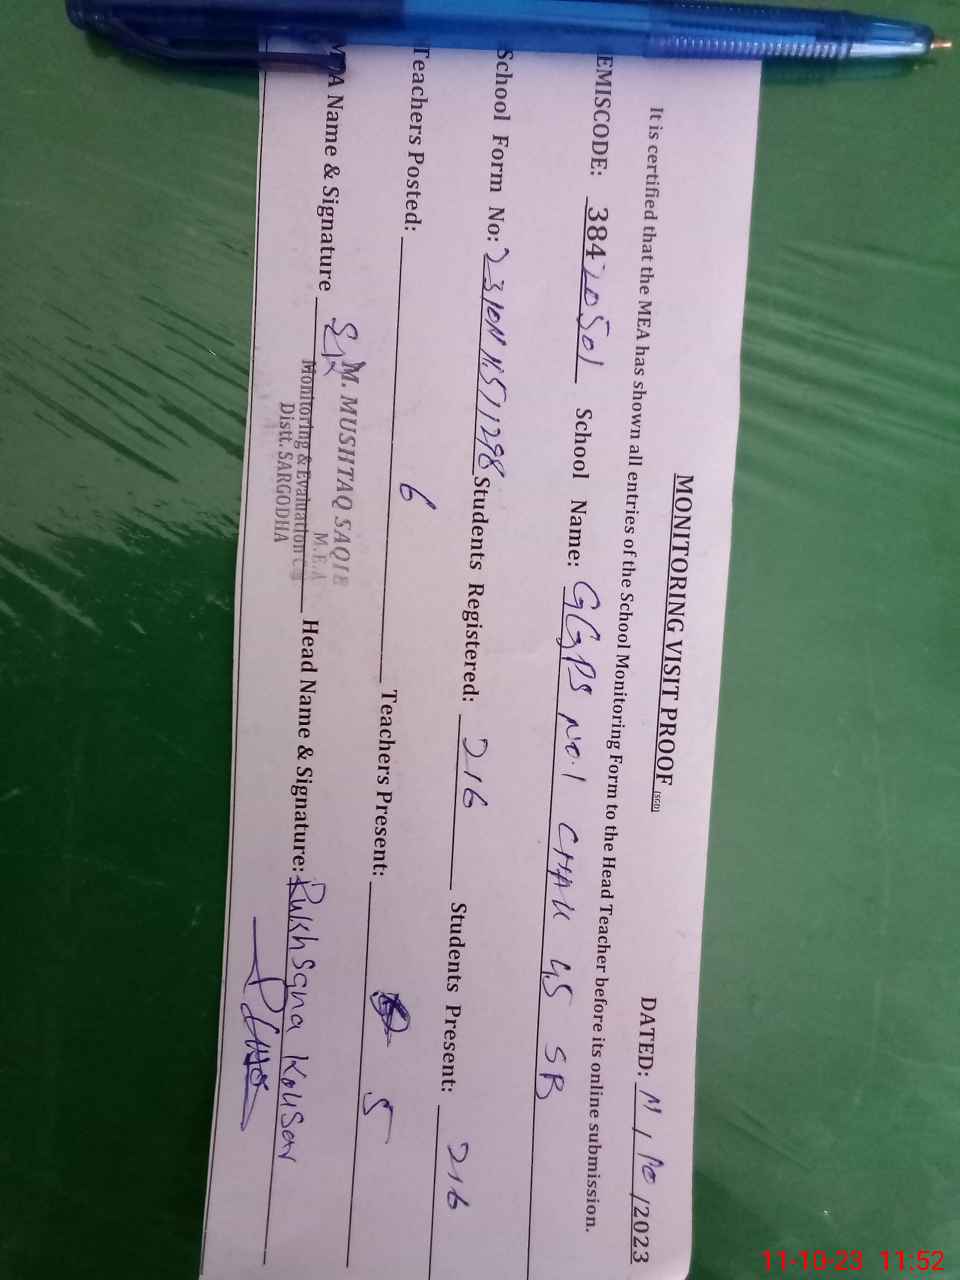 MONITORING VISIT PROOF (SGD)
DATED: 11 / 10 /2023
It is certified that the MEA has shown all entries of the School Monitoring Form to the Head Teacher before its online submission.
EMISCODE: 38420501 School Name: GGPS NO.1 CHAK 45 SB
School Form No: Students Registered: 216 Students Present: 216
Teachers Posted: 6 Teachers Present: 5
Name & Signature Head Name & Signature: Rukhsana Kousar
M. MUSHTAQ SAQIB
M.E.A
Monitoring & Evaluation
Distt. SARGODHA
11-10-23 11:52